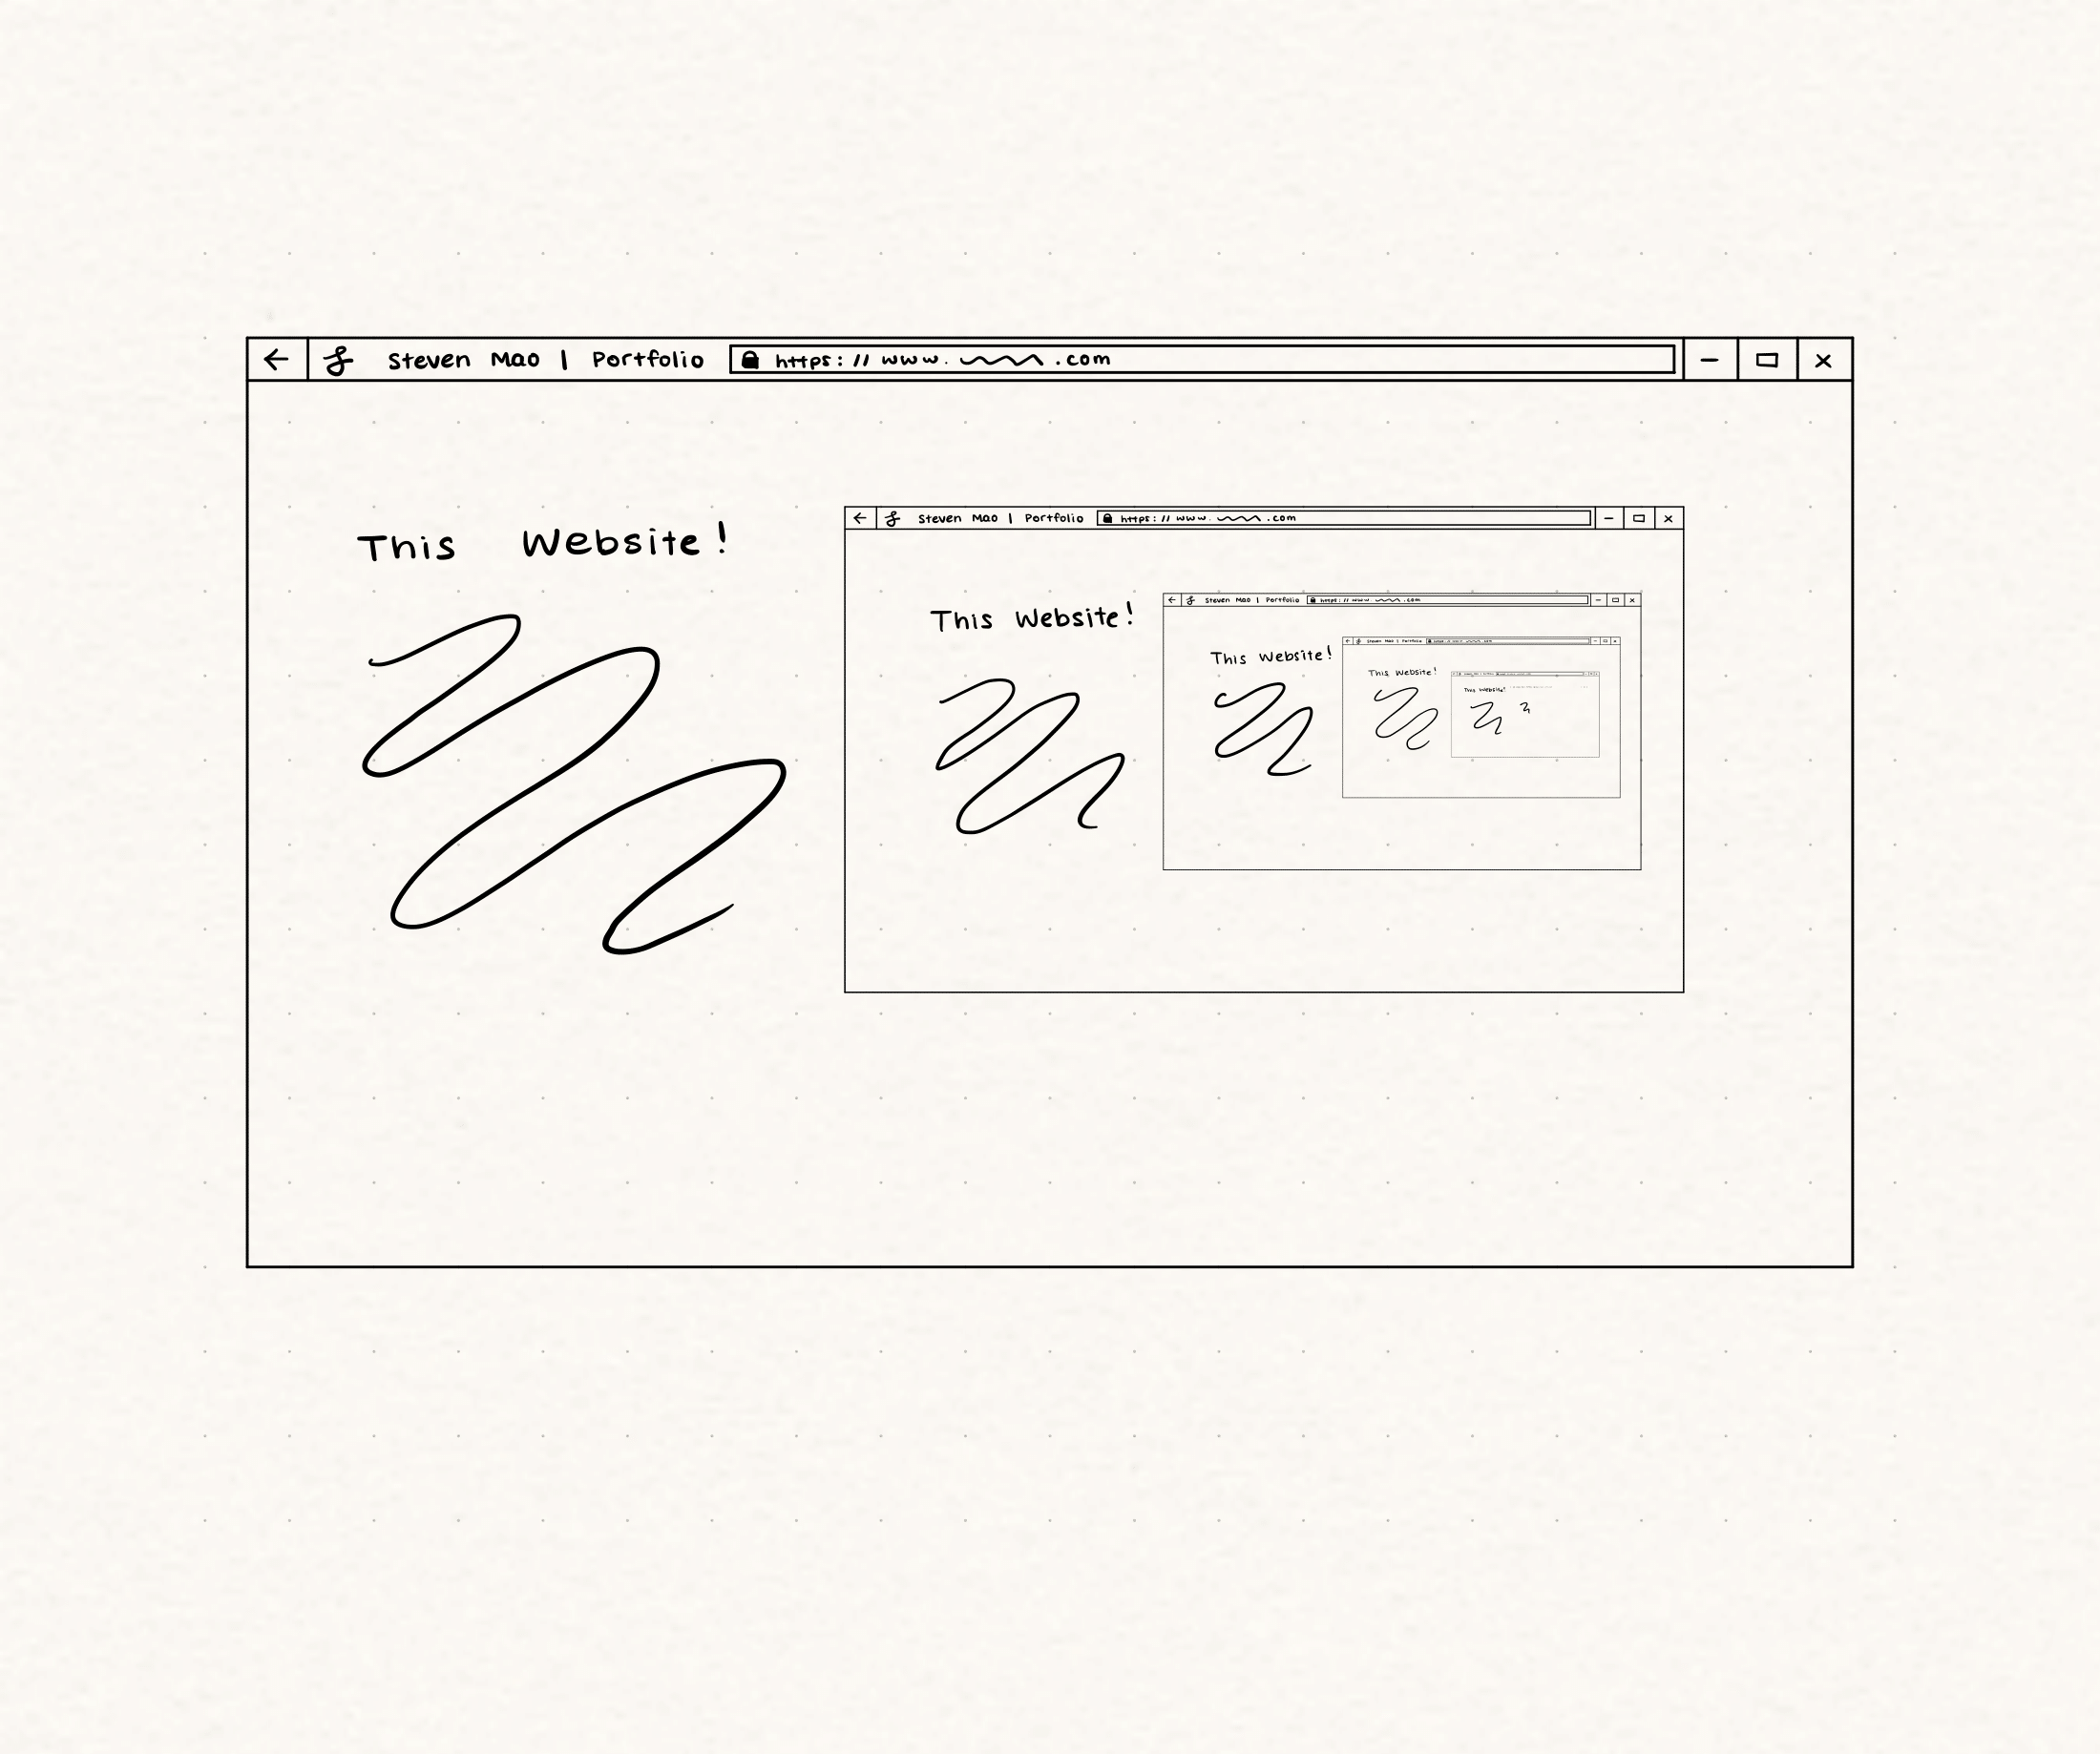 Steven Mao | Portfolio https://www. .com
This Website!
Steven Mao | Portfolio https://www. .com
This Website!
Steven Mao | Portfolio https://www. .com
This Website!
Steven Mao | Portfolio
This Website!
This Website!